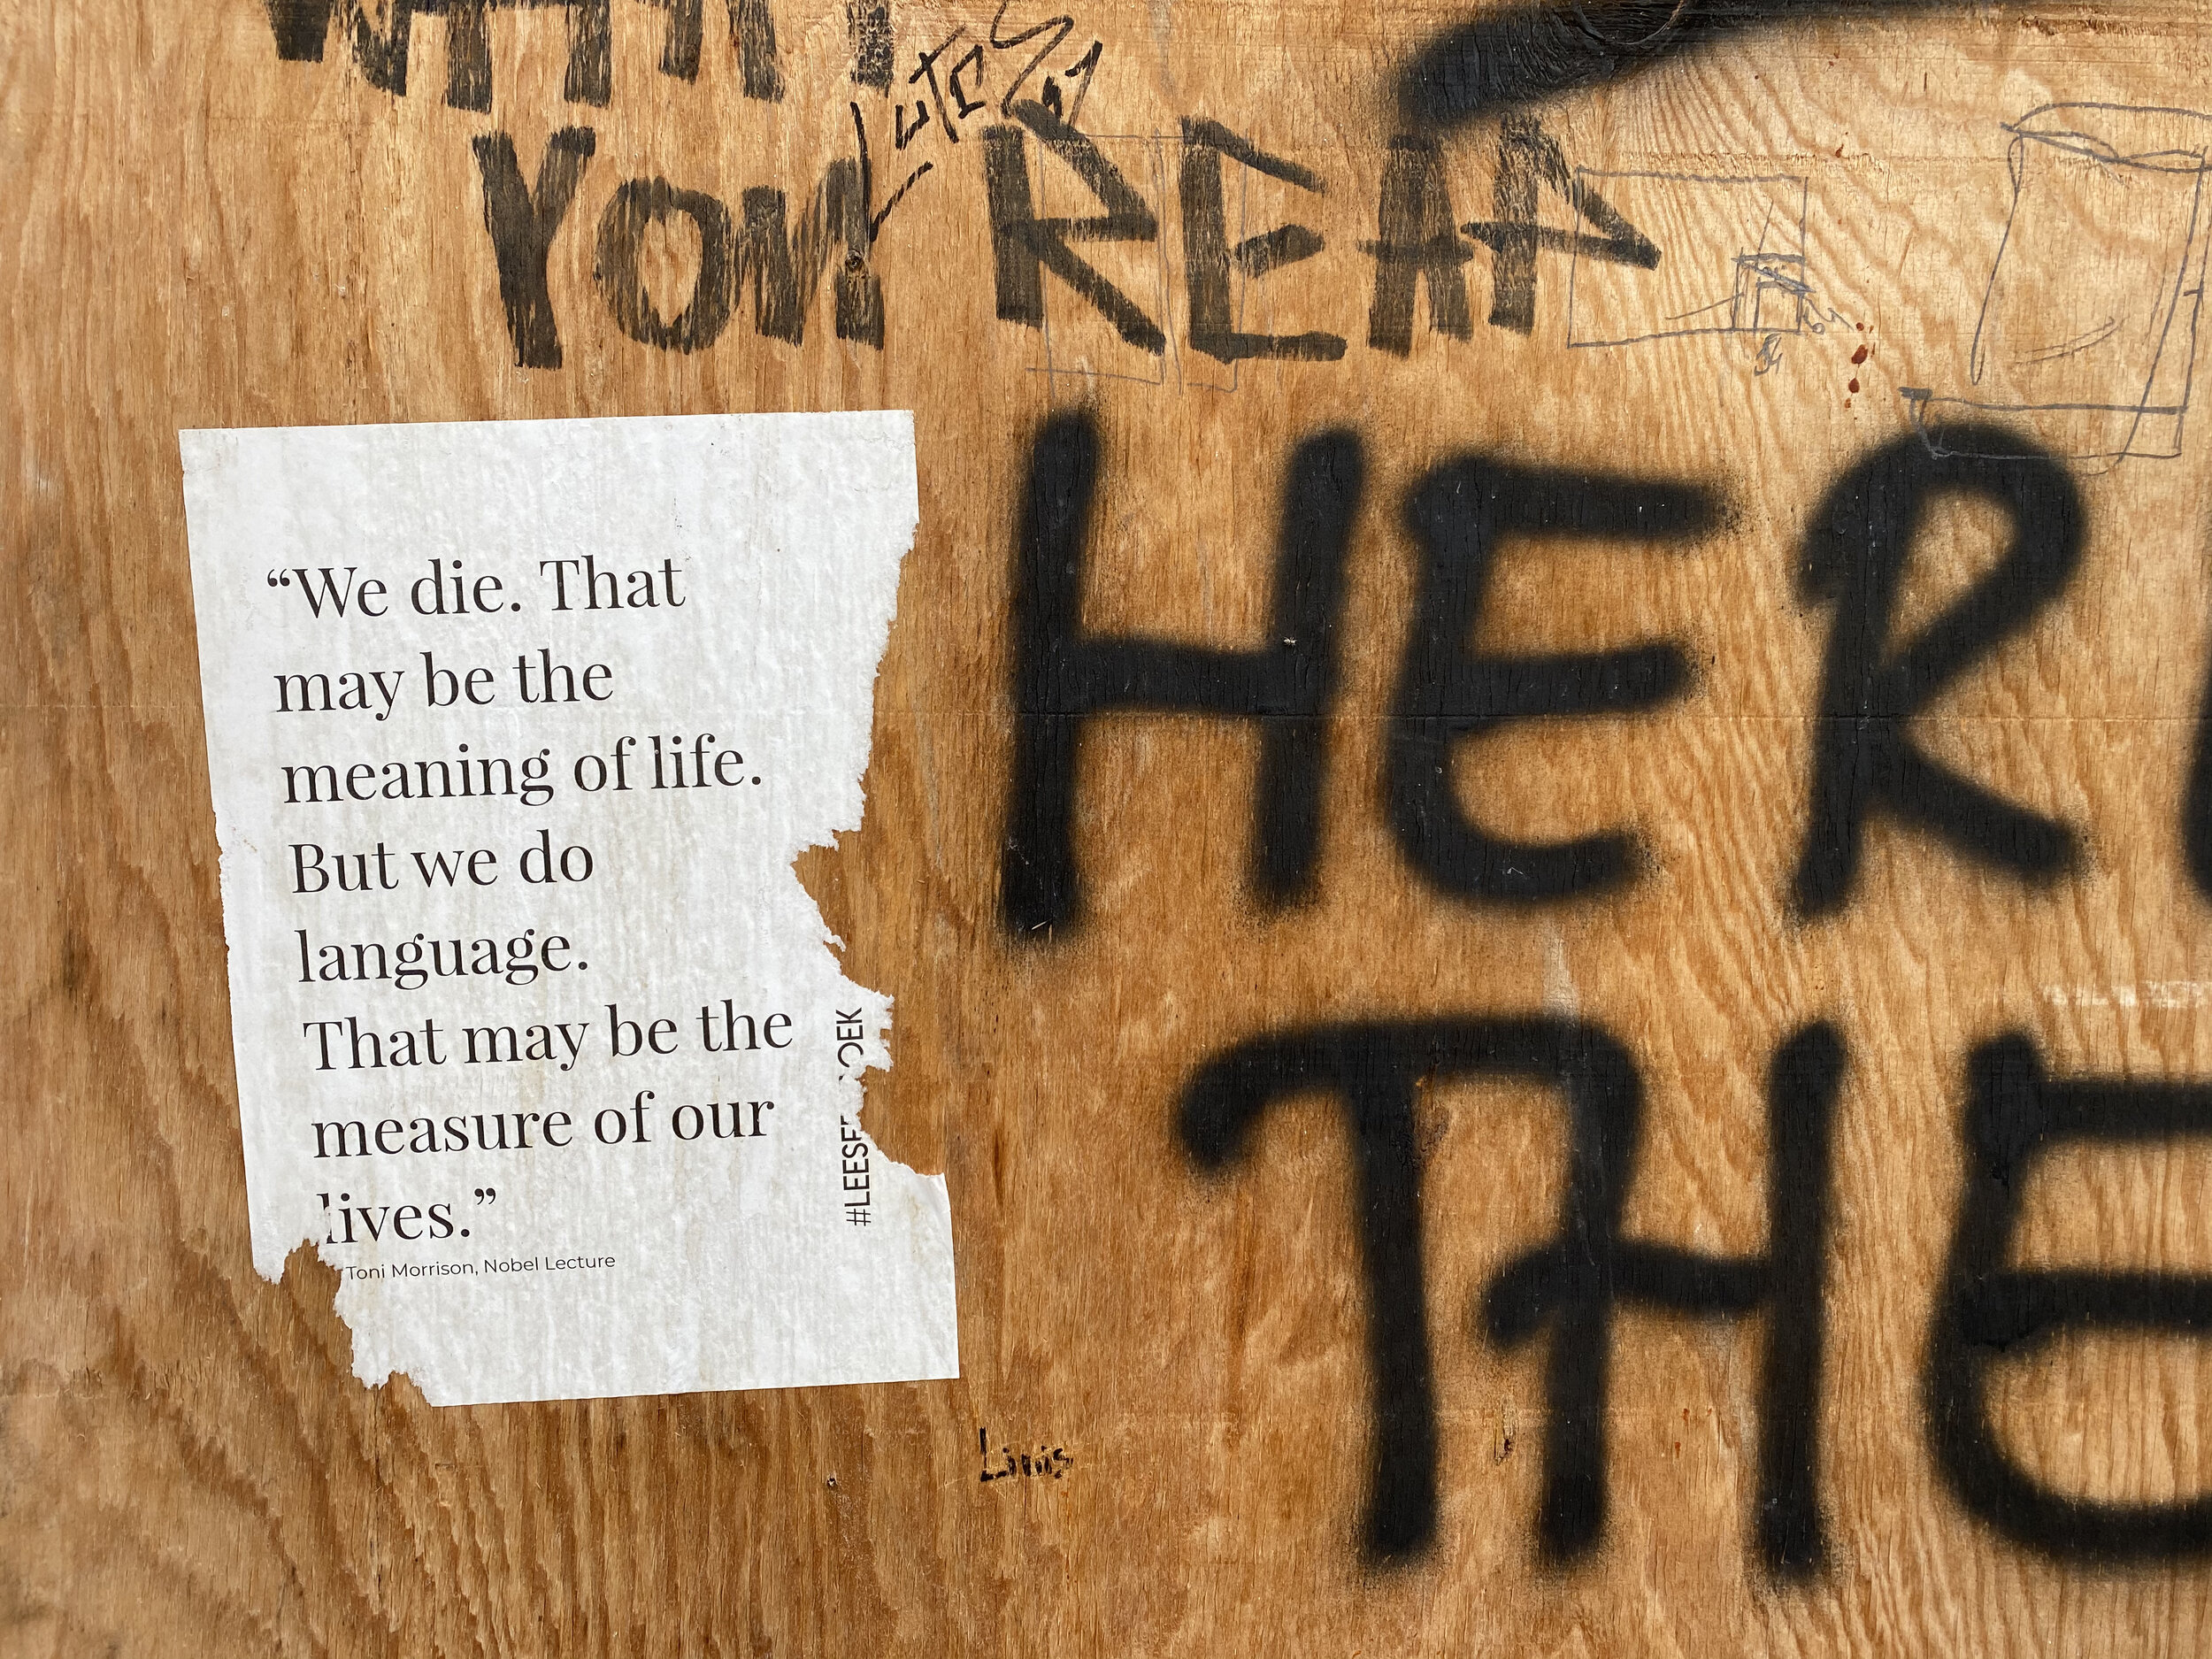 WHAT
YOU READ
"We die. That
may be the
meaning of life.
But we do
language.
That may be the
measure of our
lives."
Toni Morrison, Nobel Lecture
HER
THE